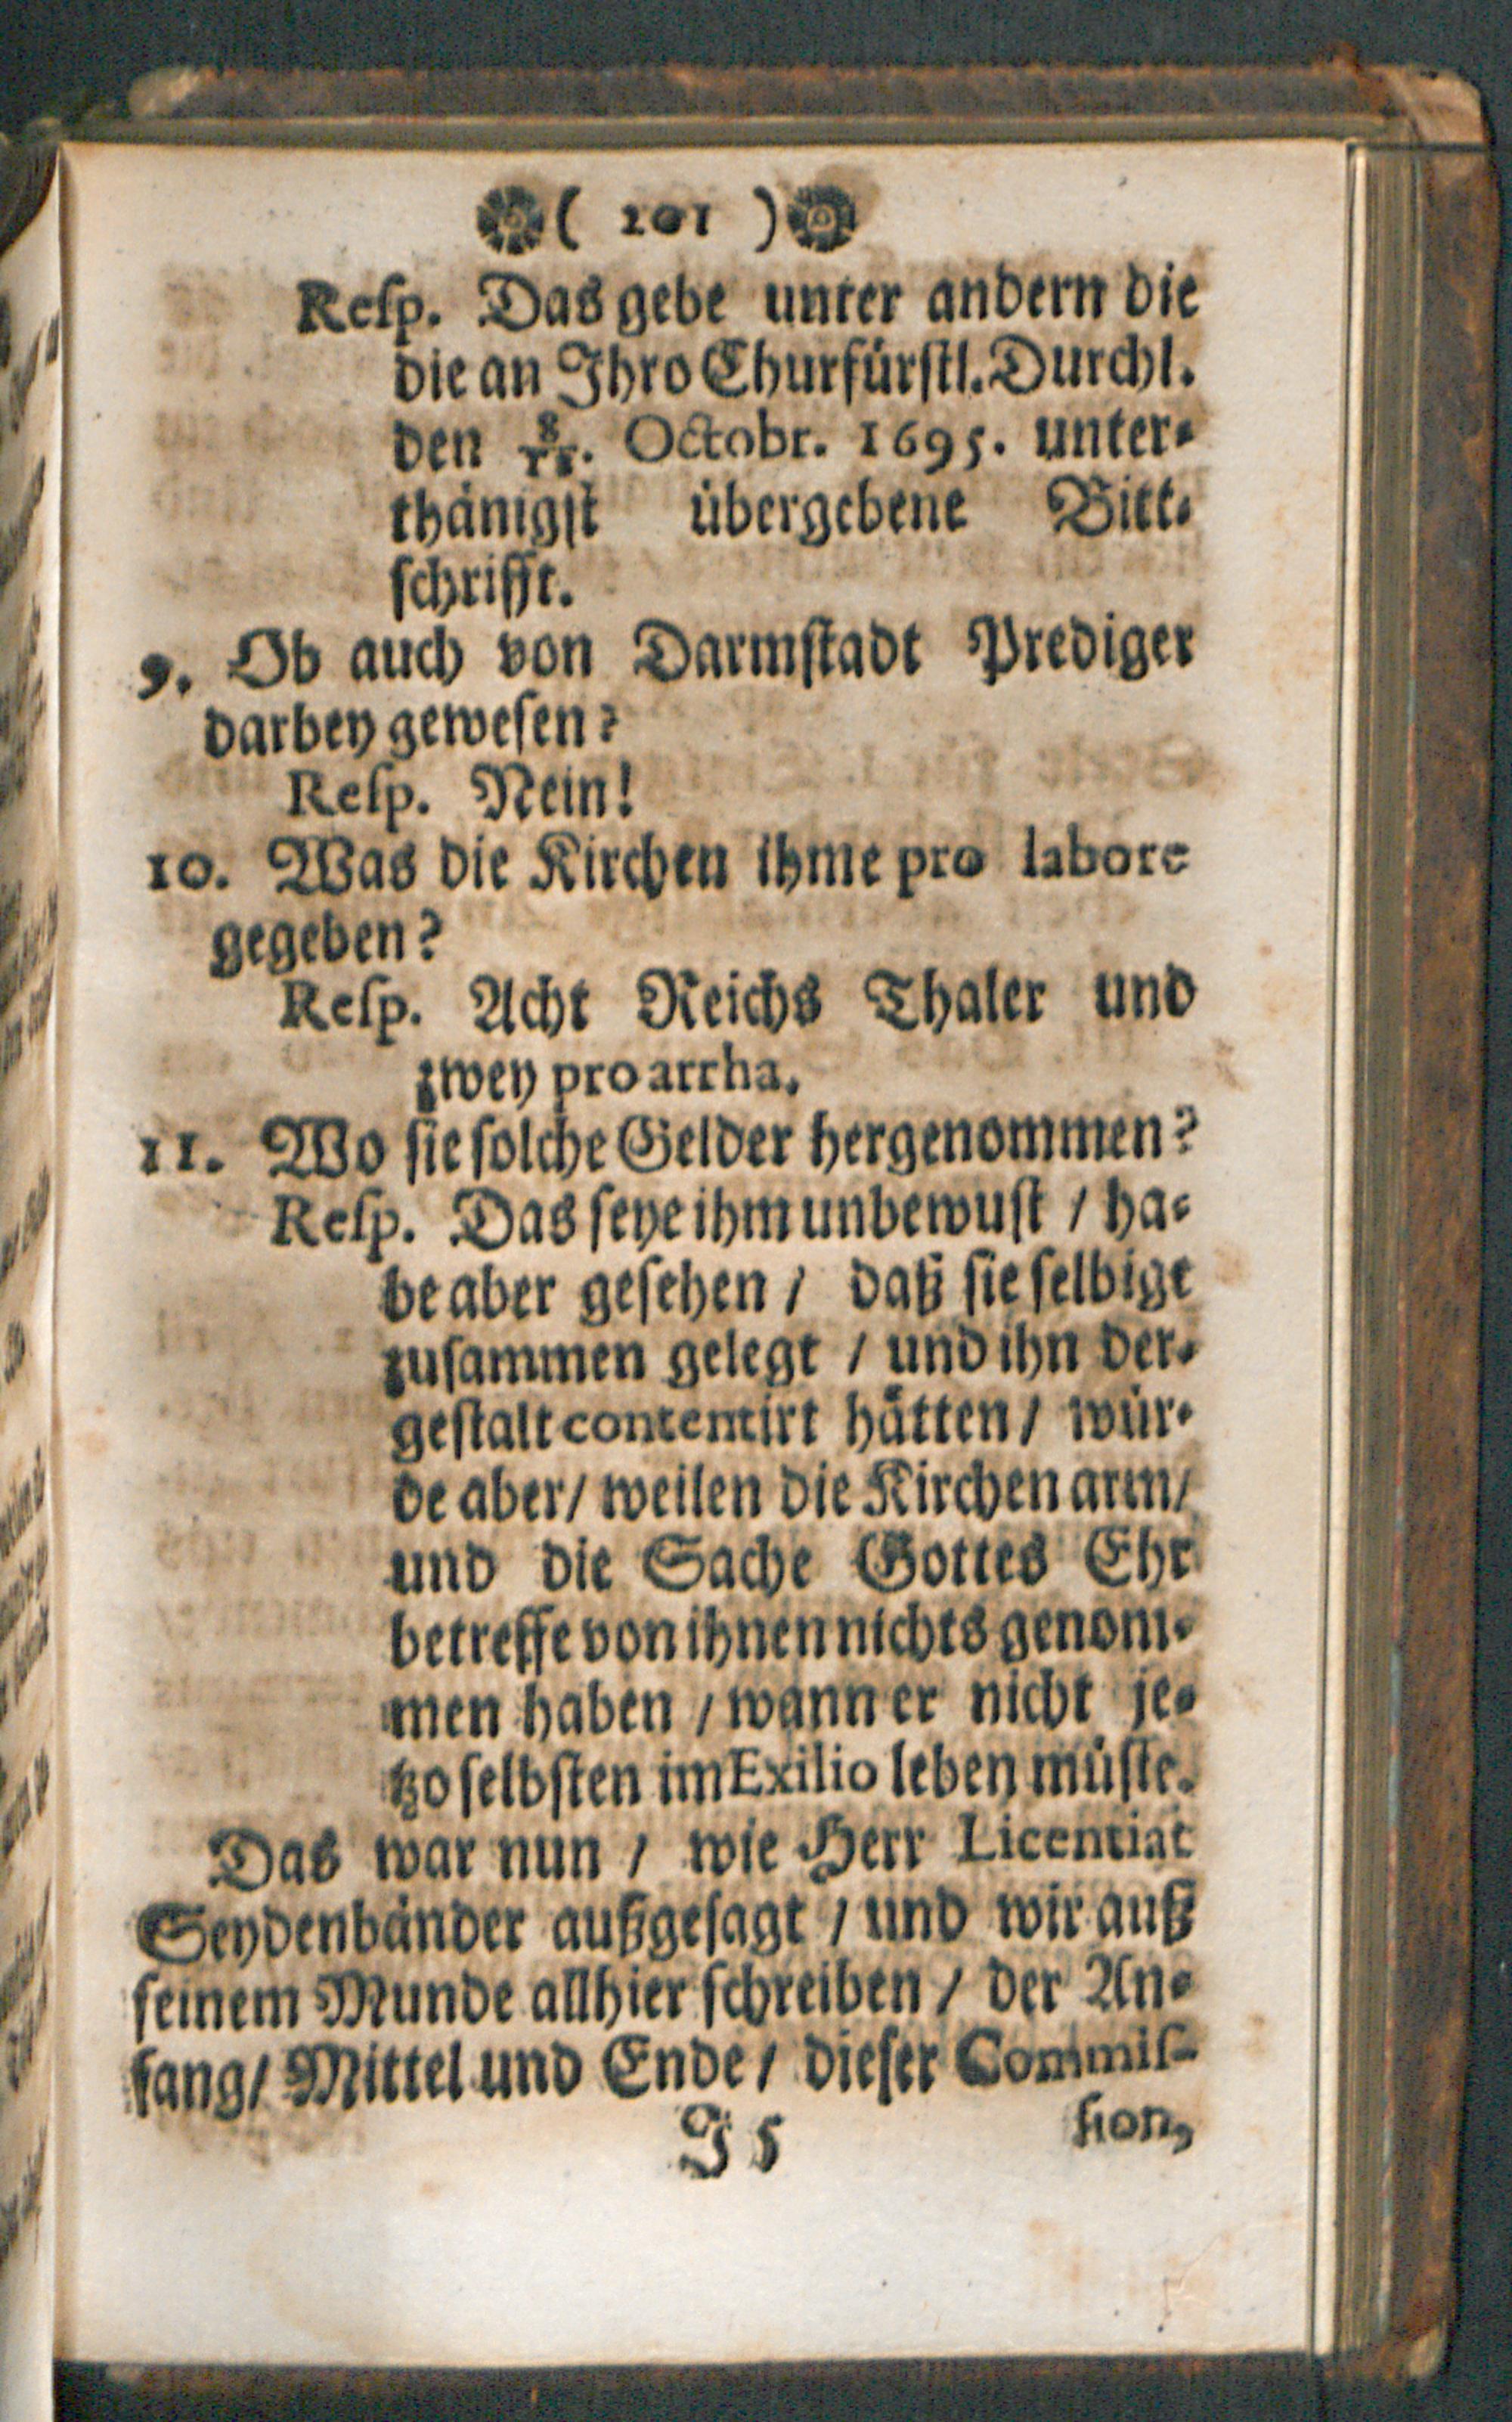 ( 201 )
Resp. Das gebe unter andern die
die an Ihro Churfürstl. Durchl.
den 8/18. Octobr. 1695. unter-
thänigst übergebene Bitt-
schrifft.
9. Ob auch von Darmstadt Prediger
darbey gewesen?
Resp. Nein!
10. Was die Kirchen ihme pro labore
gegeben?
Resp. Acht Reichs Thaler und
zwey pro arrha.
11. Wo sie solche Gelder hergenommen?
Resp. Das seye ihm unbewust / ha-
be aber gesehen / daß sie selbige
zusammen gelegt / und ihn der-
gestalt contentirt hätten / wür-
de aber / weilen die Kirchen arm /
und die Sache Gottes Ehr
betreffe von ihnen nichts genom-
men haben / wann er nicht je-
tzo selbsten im Exilio leben müste.
Das war nun / wie Herr Licentiat
Seydenbänder außgesagt / und wir auß
seinem Munde allhier schreiben / der An-
fang / Mittel und Ende / dieser Commis-
J 5 sion,